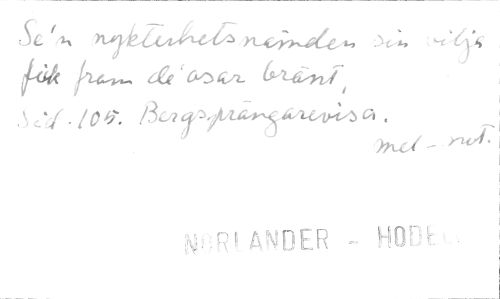 Se'n nykterhetsnämnden sin vilja
fick fram de' osar bränt,
sid. 105. Bergsprängarevisa.
mel-not.
NORLANDER - HODELL